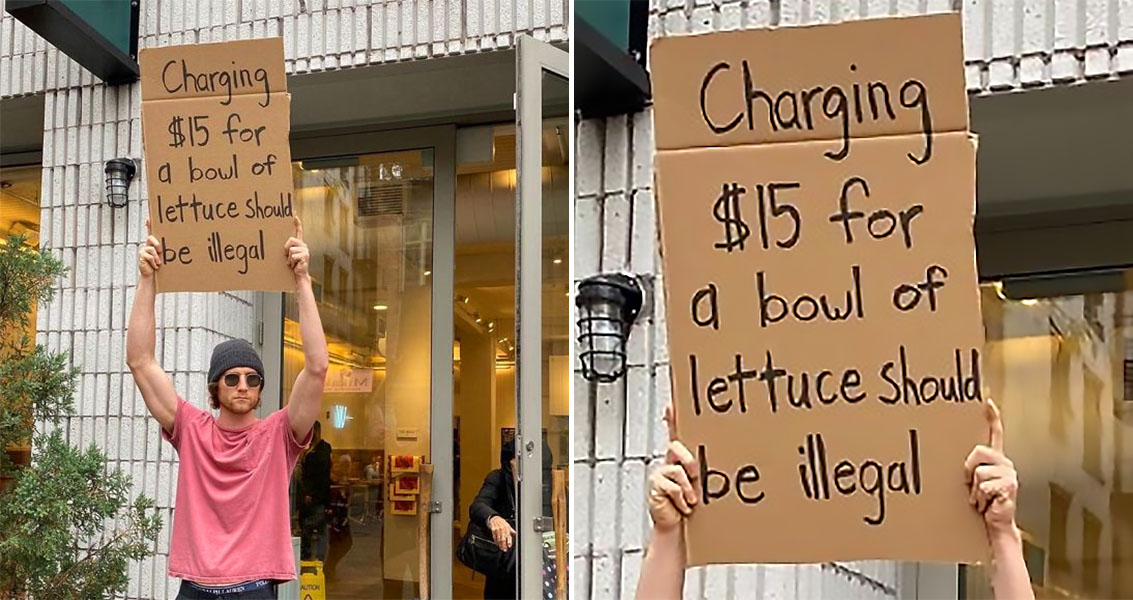 Charging
$15 for
a bowl of
lettuce should
be illegal
CAUTION
POLO
RALPH LAUREN
Charging
$15 for
a bowl of
lettuce should
be illegal